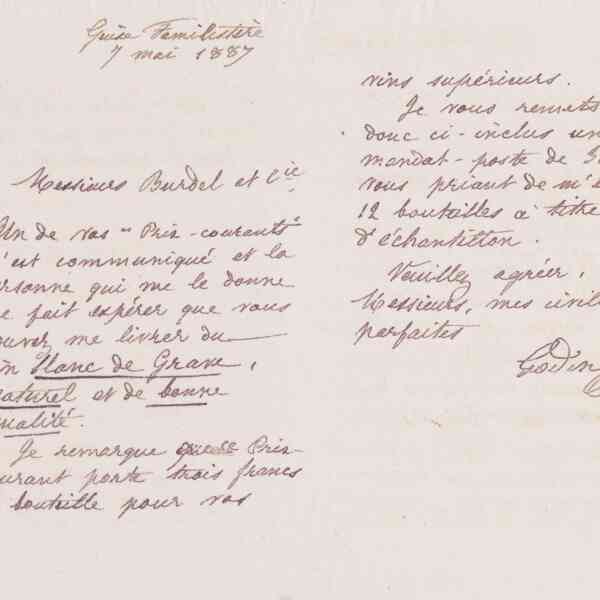 Guise Familistère
7 mai 1887
Messieurs Burdel et Cie,
Un de vos "Prix-courants"
'est communiqué et la
ersonne qui me le donne
e fait espérer que vous
ouvez me livrer du
in blanc de Grave,
aturel et de bonne
ualité.
Je remarque que ce Prix-
ourant porte trois francs
bouteille pour vos
vins supérieurs.
Je vous remets
donc ci-inclus un
mandat-poste de 3
vous priant de m'e
12 bouteilles à titre
d'échantillon.
Veuillez agréer,
Messieurs, mes civil
parfaites
Godin